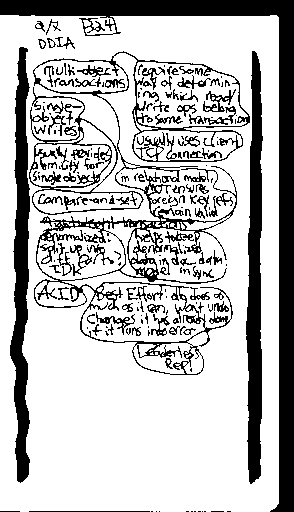 Q/X 324
DDIA
multi-object
transactions
require some
way of determin-
ing which read/
write ops belong
to some transaction
single-
object
writes
usually uses client
TCP connection
usually provides
atomicity for
single objects
in relational model,
ensures
foreign key refs
remain valid
Compare-and-set
transactions
denormalized:
split up into
diff parts?
IDK
helps to keep
denormalized
data in doc data
model in sync
ACID
Best Effort: db does as
much as it can, won't undo
changes it has already done
if it runs into error
Leaderless
Repl